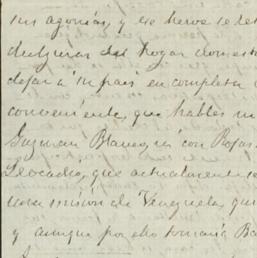 sus agonías, y ese heroe se de
dulzuras del hogar domest
dejar á su pais en completa
conveniente, que hables
Guzman Blanco, ni con Rojas
Leocadio, que actualmente
una mision de Venezuela, qui
y aunque por ello tomaria Ba